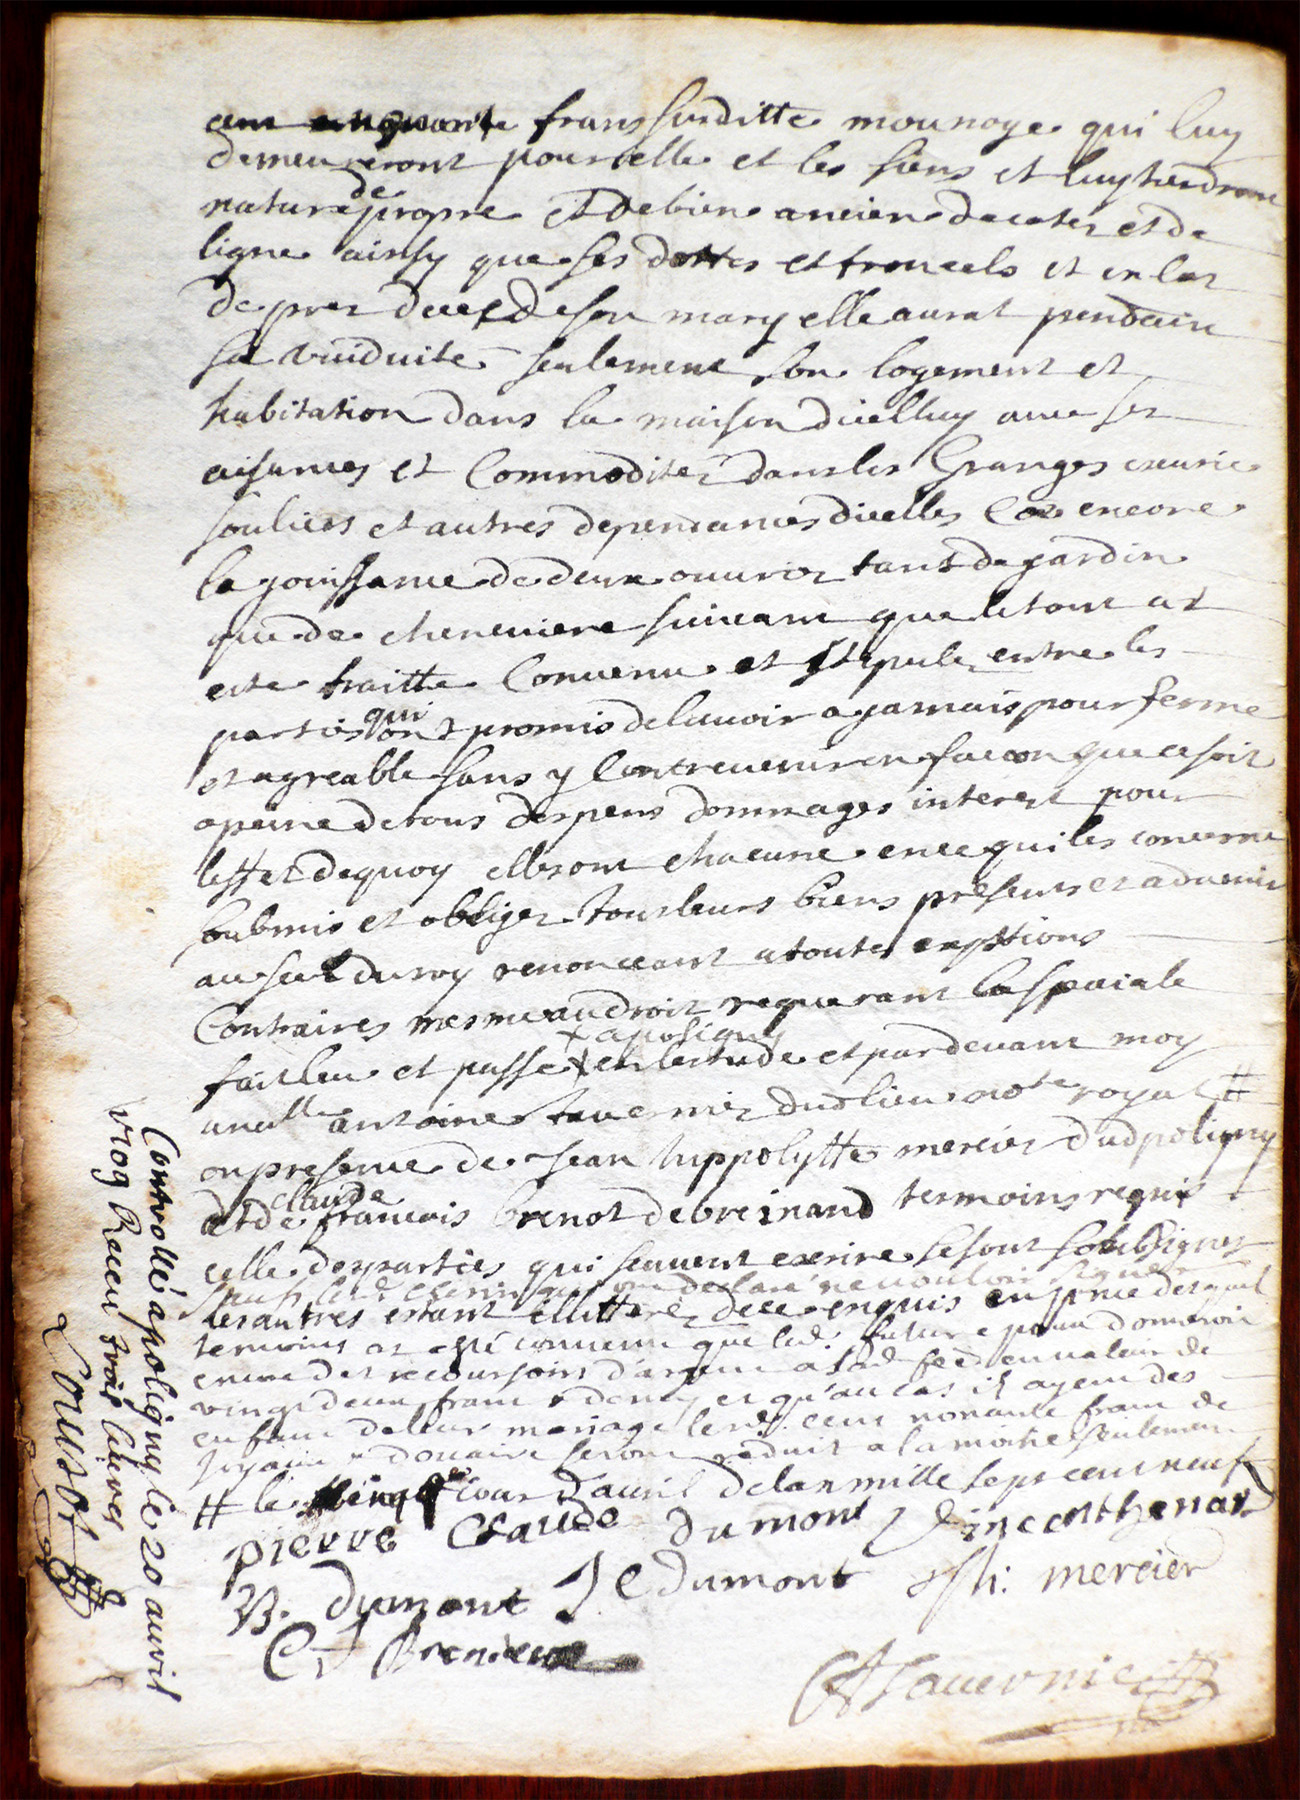 cent cinquante frans surditte monnoye qui luy
demeureront pour elle et les siens et luy tiendront
nature de propre et de bien ancien de coter et de
ligne ainsy que ses dottes et troucels et en las
de prez decet de son mary elle aurat pendain
sa viuduité seulement son logement et
habitation dans la maison dicelluy avec ses
aisances et Commoditéz dans les Granges escurie
souliers et autres dependances dicelles Et encore
la jouissance de deux ouvrez tant de jardin
que de cheneviere suivant que le tout at
este traitte Convenu et stipulez entre les
parties qui ont promis de lavoir a jamais pour ferme
et agreable sans y Contrevenir en facon que ce soit
a peine de tous despens dommages interest pour
leffet de quoy elles ont chacune en ce qui les concerne
soubmis et obligez tous leurs biens presents et advenir
au scel du roy renonceant a toutes exptions
Contraires mesme au droit requerant la spaiale
fait leu et passe en lestude et pardevant moy
+ a poligny
antoine tavernier dud lieu note royal #
en presence de Jean hippolytte mercier dud poligny
et de claude francois brenot de breinand tesmoins requis
celle des parties qui scavent escrire se sont soubsignez
sauf led declaré ne vouloir signer
les autres estant illitterez de ce enquis en pnce desquels
temoins at esté convenu que lad. future
d'argent a lad
vingt deux franc & demy et qu'au cas il ayent des
enfans de leur mariage lesd. cent nonante franc de
joyaux & douaire seront reduit a la moitié seulement
# le jour d'avril de lan mille sept cent neuf
pierre Claude dumont Vincent thenard
B. Dumont J C dumont hi: mercier
C F Brenieux
C A Tavernier
Controllé a poligny le 20 avril
1709 Receu trois livres
Cousot